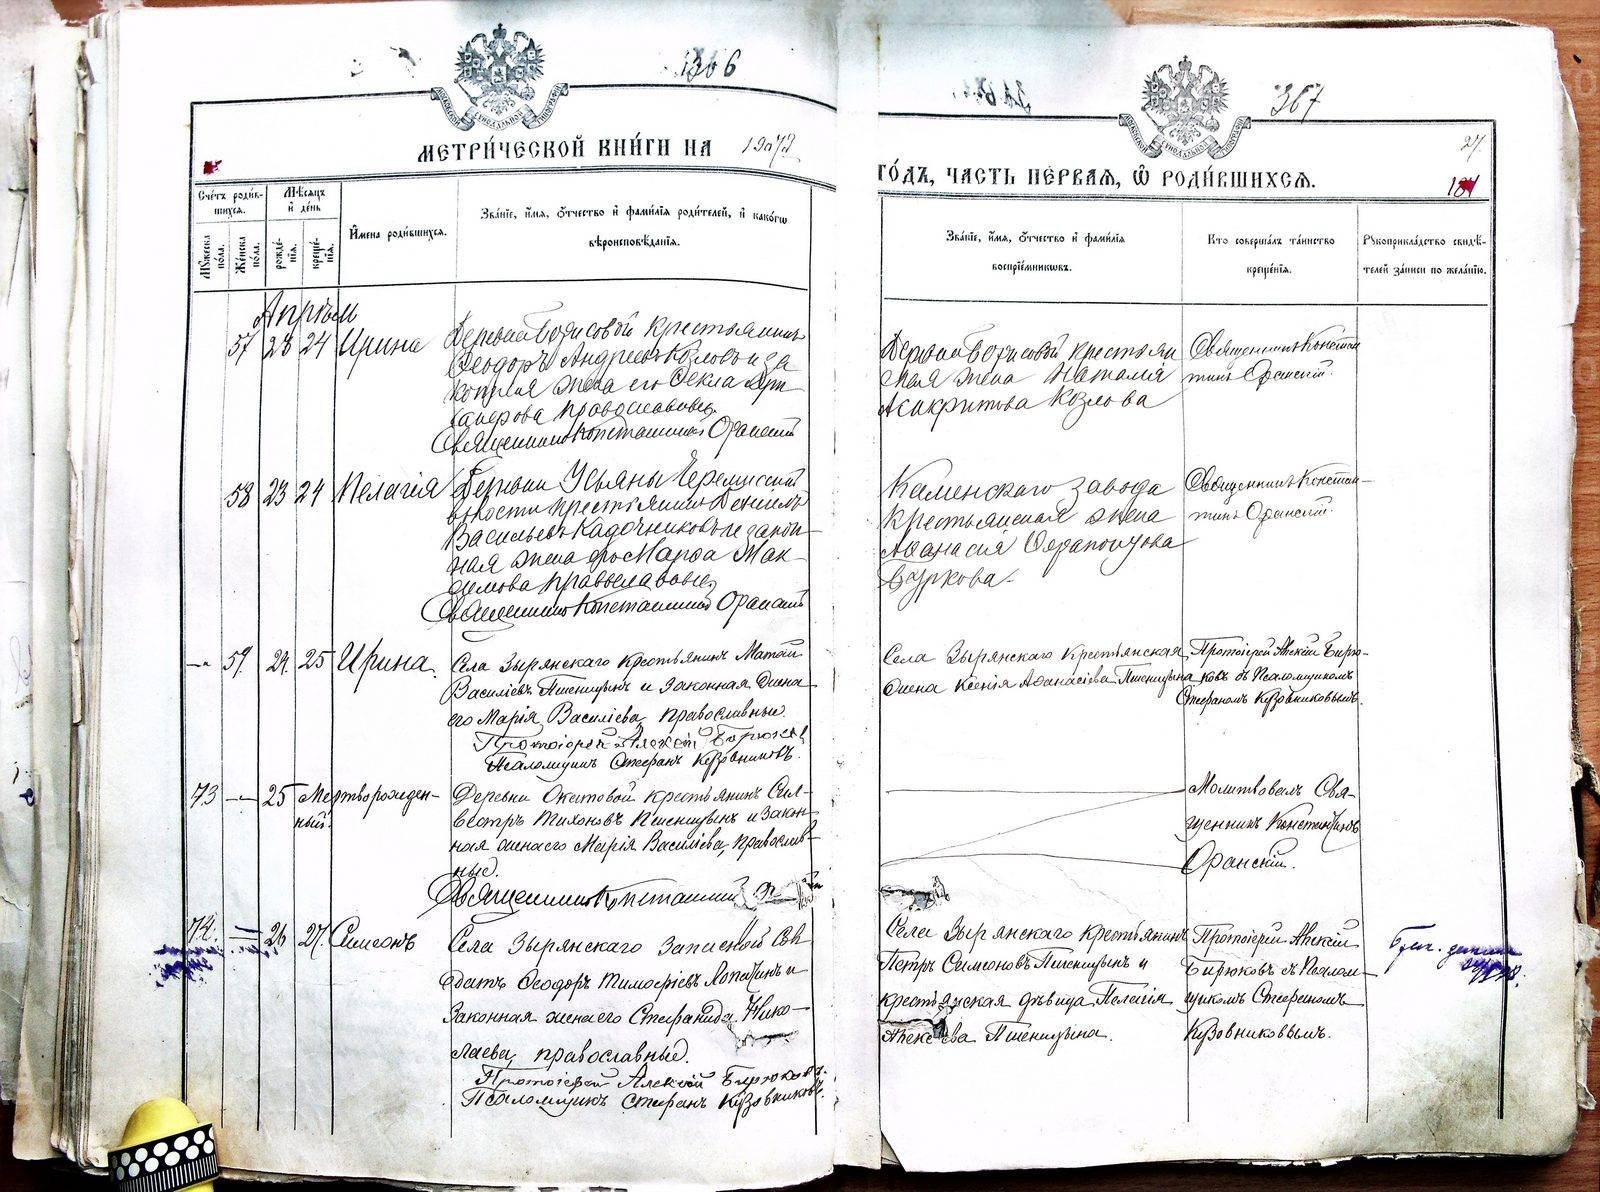 1366
367
МЕТРИ́ЧЕСКОЙ КНИ́ГИ НА
ГО́ДЪ, ЧАСТЬ ПЕ́РВАЯ, Ѡ РОДИ́ВШИХСЯ.
27.
Сче́тъ роди́в-
шихся.
Мѣ́сяцъ
и҆ де́нь
И҆мена роди́вшихся.
Зва́нїе, и҆́мя, ѻ҆́тчество и҆ фами́лїя роди́телей, и҆ како́гѡ
вѣроисповѣ́данїя.
Му́жеска
по́ла.
Же́нска
по́ла.
рожде́-
нїя.
креще́-
нїя.
Зва́нїе, и҆́мя, ѻ҆́тчество и҆ фами́лїя
воспрїе́мникѡвъ.
Кто соверша́лъ та́инство
креще́нїя.
Рꙋкоприкла́дство свидѣ́-
телей за́писи по жела́нїю.
Апрѣль
57 23 24 Ирина
Деревни Борисовой крестьянинъ
Ѳеодоръ Андреевъ Козловъ и за
конная жена его Ѳекла
православные
Священникъ Константинъ Оранскій
Деревни Борисовой крестьян
ская жена Наталія
Асикритова Козлова
Священникъ Констан
тинъ Оранскій.
58 23 24 Пелагія
Деревни
крестьянинъ
Васильевъ Кадочниковъ и закон-
ная жена его Марѳа Мак-
симова православные
Священникъ Константинъ Оранскій
Каменскаго завода
крестьянская жена
Аѳанасія Ферапонтова
Буркова.
Священникъ Констан-
тинъ Оранскій.
59. 24. 25 Ирина.
Села Зырянскаго крестьянинъ Матѳій
Василіевъ Пшеницынъ и законная жена
его Марія Василіева, православные.
Протоіерей Алексій Бирюковъ
Псаломщикъ Стефанъ Кузовниковъ.
Села Зырянскаго крестьянская
жена Ксенія Аѳанасіева Пшеницына
Протоіерей Алексій Бирю-
ковъ съ Псаломщикомъ
Стефаномъ Кузовниковымъ.
73 — 25 Мертворожден-
ный.
Деревни Окатовой крестьянинъ Сил-
вестръ Тихоновъ Пшеницынъ и закон-
ная жена его Марія Василіева, православ-
ные.
Священникъ Константинъ
Молитвовалъ Свя-
щенникъ Константинъ
Оранскій.
74. 26 27. Симеонъ
Села Зырянскаго запасной сол
датъ Ѳеодоръ Тимоѳіевъ Лопатинъ и
законная жена его Стефанида Нико-
лаева, православные.
Протоіерей Алексій Бирюковъ.
Псаломщикъ Стефанъ Кузовниковъ.
Села Зырянскаго крестьянинъ
Петръ Симеоновъ Пшеницынъ и
крестьянская дѣвица Пелагія
Алексіева Пшеницына.
Протоіерей Алексій
Бирюковъ съ Псалом-
щикомъ Стефаномъ
Кузовниковымъ.